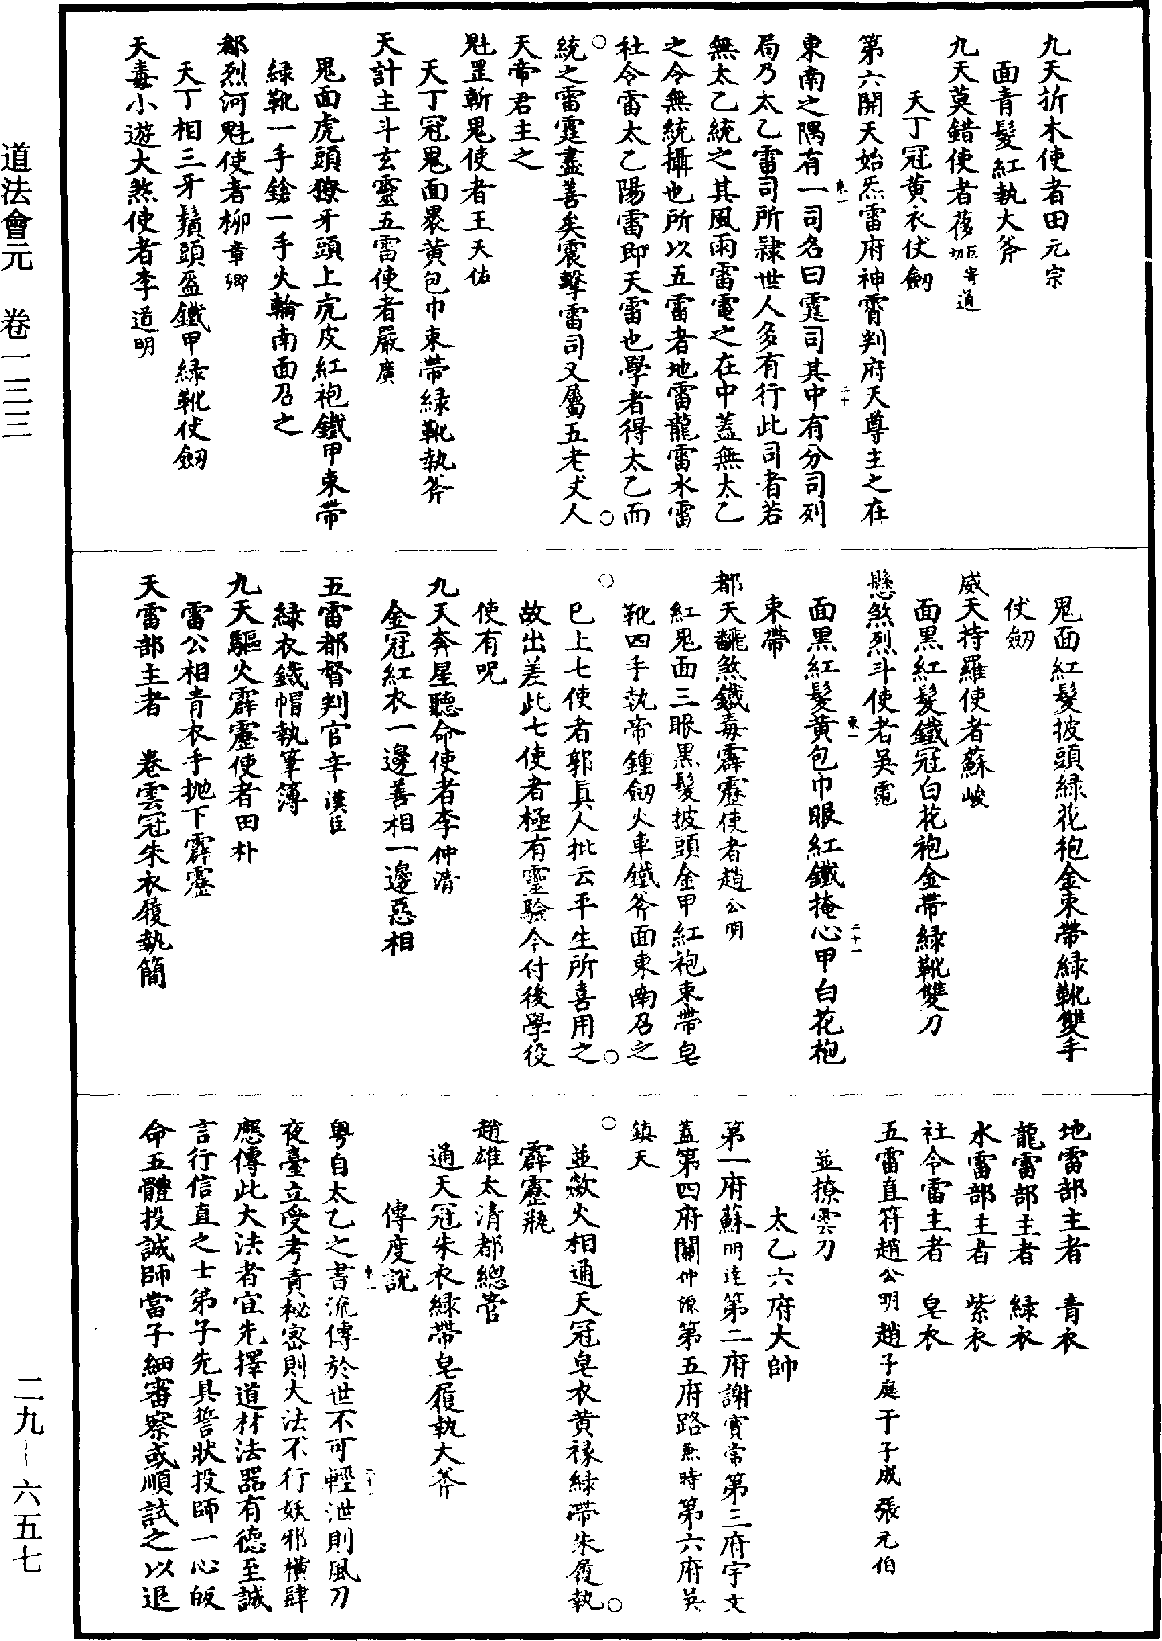 九天折木使者田元宗
面青髮紅執大斧
九天莫錯使者
天丁冠黃衣仗劒
第六開天始炁雷府神霄判府天尊主之在
東南之隅有一司名曰霆司其中有分司列
局乃太乙雷司所隸世人多有行此司者若
無太乙統之其風雨雷電之在中蓋無太乙
之令無統攝也所以五雷者地雷龍雷水雷
社令雷太乙陽雷即天雷也學者得太乙而
統之雷霆盡善矣震擊雷司又屬五老丈人
天帝君主之
魁罡斬鬼使者王天佑
天丁冠鬼面㬥黃包巾束帶綠靴執斧
天計主斗玄靈五雷使者嚴廣
鬼面虎頭獠牙頭上虎皮紅袍鐵甲束帶
綠靴一手鎗一手火輪南面召之
都烈河魁使者柳章卿
天丁相三牙鬚頭盔鐵甲綠靴仗劒
天毒小遊大煞使者李道明
鬼面紅髮披頭綠花袍金束帶綠靴雙手
仗劒
威天持羅使者蘇峻
面黑紅髮鐵冠白花袍金帶綠靴雙刀
懸煞烈斗使者吳電
面黑紅髮黃包巾眼紅鐵掩心甲白花袍
束帶
都天飜煞鐵毒霹靂使者趙公明
紅鬼面三眼黑髮披頭金甲紅袍束帶皂
靴四手執帝鍾劒火車鐵斧面東南召之
已上七使者郭真人批云平生所喜用之
故出差此七使者極有靈驗今付後學役
使有呪
九天奔星聽命使者李仲清
金冠紅衣一邊善相一邊惡相
五雷都督判官辛漢臣
綠衣鐵帽執筆簿
九天驅火霹靂使者田朴
雷公相青衣手抛下霹靂
天雷部主者　卷雲冠朱衣履執簡
地雷部主者　青衣
龍雷部主者　綠衣
水雷部主者　紫衣
社令雷主者　皂衣
五雷直符趙公明趙子庭干子成張元伯
並撩雲刀
太乙六府大帥
第一府蘇明達第二府謝實常第三府宇文
蓋第四府關仲源第五府路無時第六府吳
鎮天
並歘火相通天冠皂衣黃祿綠帶朱履執
霹靂䂎
趙雄太清都總管
通天冠朱衣綠帶皂履執大斧
傳度說
粤自太乙之書流傳於世不可輕泄則風刀
夜臺立受考責秘密則大法不行妖邪橫肆
應傳此大法者宜先擇道材法器有德至誠
言行信直之士弟子先具誓狀投師一心皈
命五體投誠師當子細審察或順試之以退
道法會元　卷一三三
二九－六五七